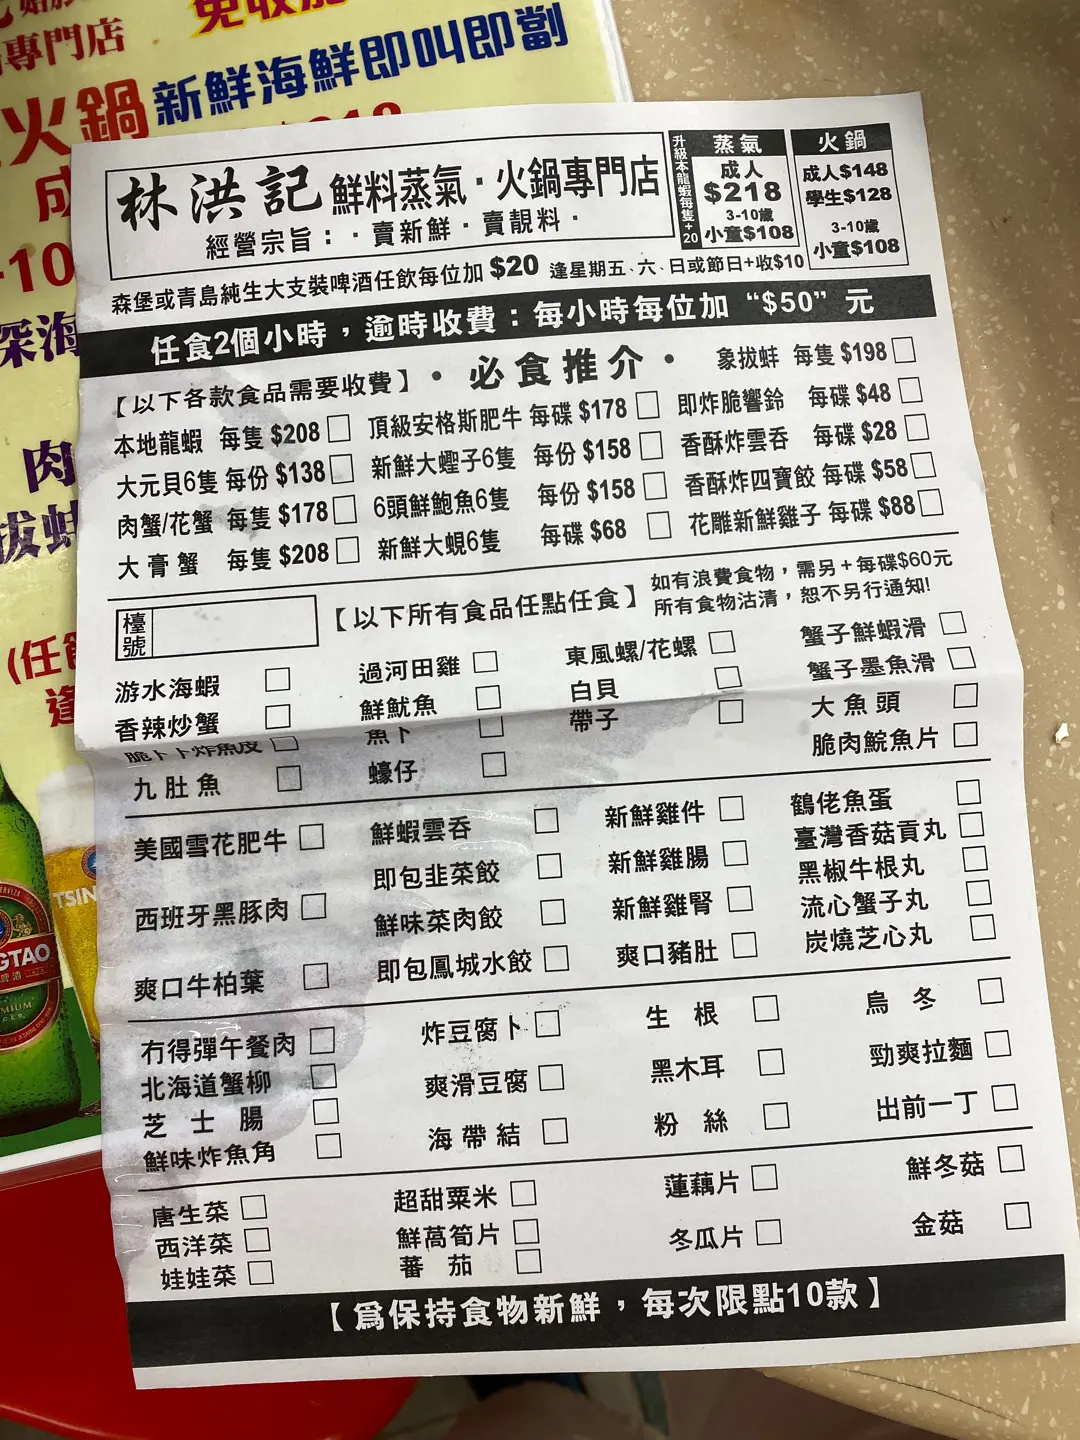 專門店
免收
火鍋
新鮮海鮮即叫即劏
林洪記 鮮料蒸氣·火鍋專門店
經營宗旨：·賣新鮮·賣靚料·
升級本龍蝦每隻+20
蒸氣
成人
$218
3-10歲
小童$108
火鍋
成人$148
學生$128
3-10歲
小童$108
森堡或青島純生大支裝啤酒任飲每位加 $20 逢星期五、六、日或節日+收$10
任食2個小時，逾時收費：每小時每位加 “$50” 元
【以下各款食品需要收費】·必食推介· 象拔蚌 每隻 $198
本地龍蝦 每隻 $208 頂級安格斯肥牛 每碟 $178 即炸脆響鈴 每碟 $48
大元貝6隻 每份 $138 新鮮大蟶子6隻 每份 $158 香酥炸雲吞 每碟 $28
肉蟹/花蟹 每隻 $178 6頭鮮鮑魚6隻 每份 $158 香酥炸四寶餃 每碟 $58
大膏蟹 每隻 $208 新鮮大蜆6隻 每碟 $68 花雕新鮮雞子 每碟 $88
檯號
【以下所有食品任點任食】
如有浪費食物，需另+每碟$60元
所有食物沽清，恕不另行通知!
游水海蝦 過河田雞 東風螺/花螺 蟹子鮮蝦滑
香辣炒蟹 鮮魷魚 白貝 蟹子墨魚滑
脆卜卜炸魚皮 魚卜 帶子 大魚頭
九肚魚 蠔仔 脆肉鯇魚片
美國雪花肥牛 鮮蝦雲吞 新鮮雞件 鶴佬魚蛋
臺灣香菇貢丸
西班牙黑豚肉 即包韭菜餃 新鮮雞腸 黑椒牛根丸
鮮味菜肉餃 新鮮雞腎 流心蟹子丸
爽口牛柏葉 即包鳳城水餃 爽口豬肚 炭燒芝心丸
冇得彈午餐肉 炸豆腐卜 生根 烏冬
北海道蟹柳 爽滑豆腐 黑木耳 勁爽拉麵
芝士腸 海帶結 粉絲 出前一丁
鮮味炸魚角
唐生菜 超甜粟米 蓮藕片 鮮冬菇
西洋菜 鮮萵筍片 冬瓜片 金菇
娃娃菜 蕃茄
【為保持食物新鮮，每次限點10款】
深海
肉
(任
逢
TSIN
GTAO